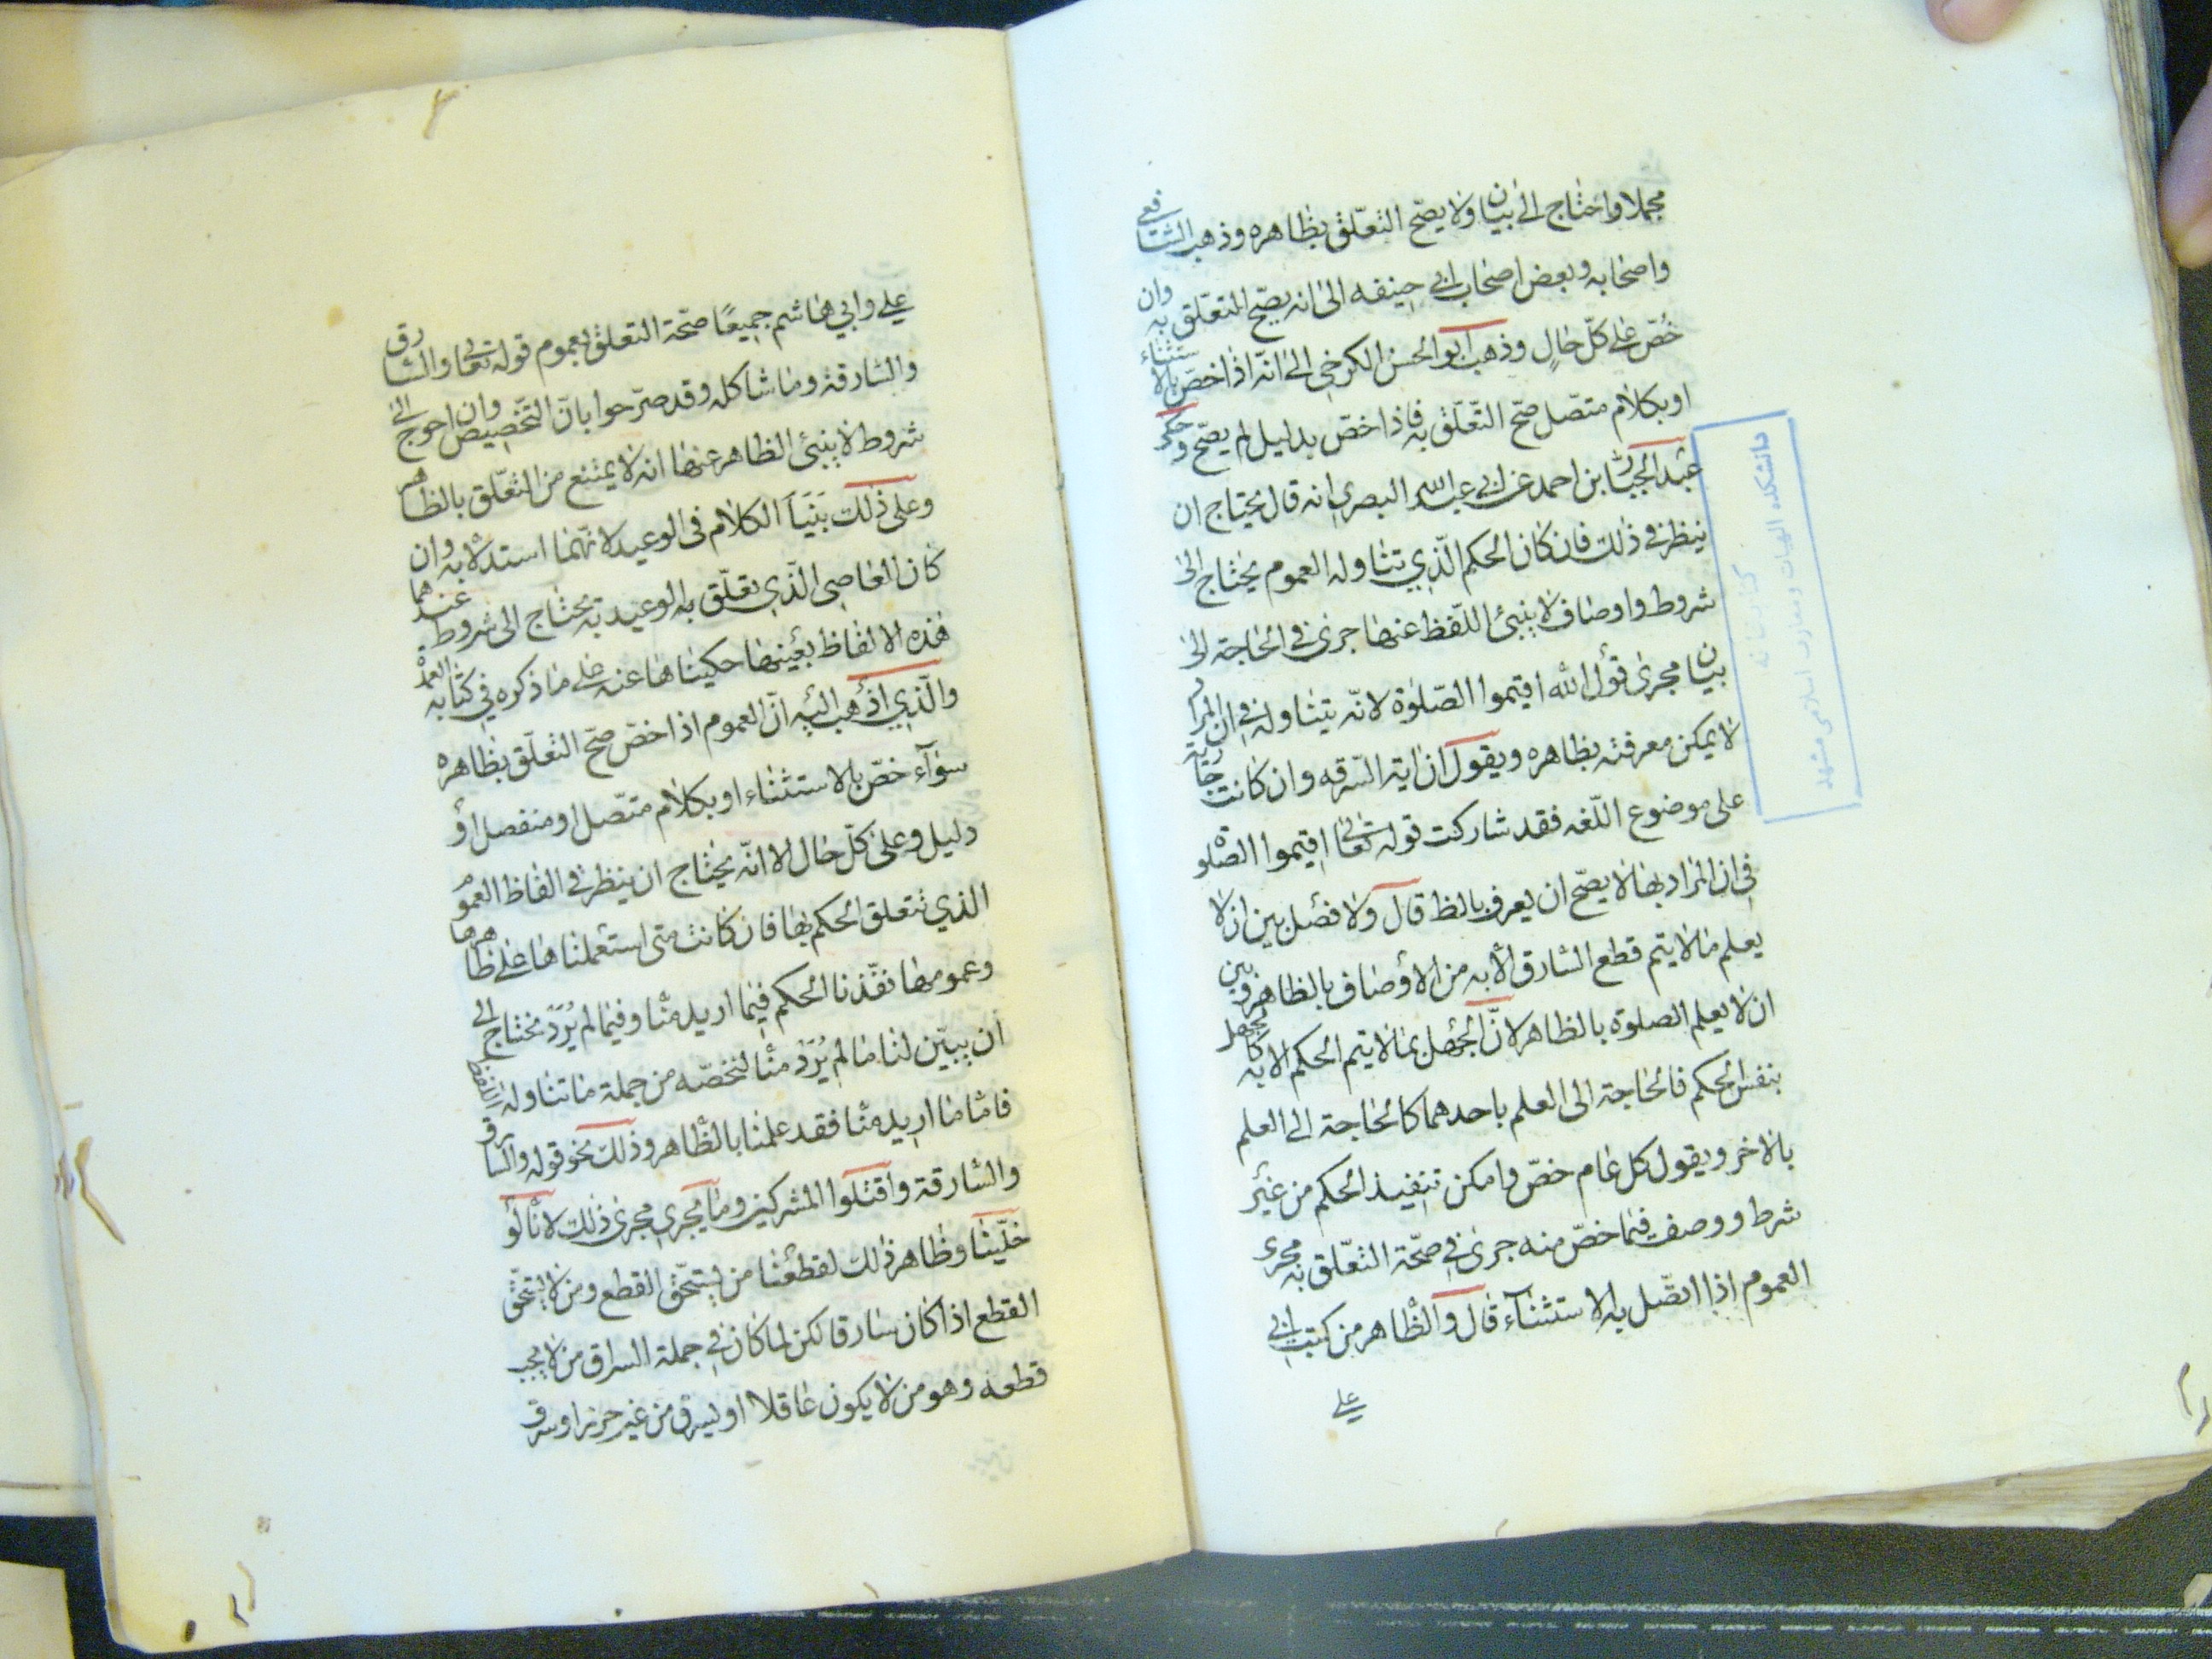 مجملا واحتاج الى بيان ولا يصح التعلق بظاهره وذهب الشافعي
واصحابه وبعض اصحاب ابي حنيفه الى انه يصح التعلق به وان
خُصّ على كلّ حالٍ وذهب ابو الحسن الكرخي الى انّه اذا خصّ بالاستثناء
او بكلام متصل صحّ التّعلّق به فاذا خصّ بدليل لم يصحّ وحكى
عبد الجبّار بن احمد عن ابي عبد الله البصري انه قال يحتاج ان
ينظر في ذلك فان كان الحكم الّذي تناوله العموم يحتاج الى
شروط واوصاف لا ينبئ اللّفظ عنها جرى في الحاجة الى
بيان مجرى قول الله اقيموا الصّلوة لانّه يتناوله في ان المراد
لا يمكن معرفته بظاهره ويقول ان اية السّرقه وان كانت جارية
على موضوع اللّغه فقد شاركت قوله تعالى اقيموا الصلوة
في ان المراد بها لا يصحّ ان يعرف بالظ قال ولا فصل بين ان لا
يعلم ما لا يتم قطع السارق الا به من الاوصاف بالظاهر وبين
ان لا يعلم الصلوة بالظاهر لانّ الجهل بما لا يتم الحكم الا به كالجهل
بنفس الحكم فالحاجة الى العلم باحدهما كالحاجة الى العلم
بالاخر ويقول كل عام خصّ وامكن تنفيذ الحكم من غير
شرط ووصف فيما خصّ منه جرى في صحّة التعلّق به مجرى
العموم اذا اتصّل به الاستثناء قال والظاهر من كتب ابي
على
على وابي هاشم جميعًا صحّة التعلق بعموم قوله تعالى والسارق
والسارقة وما شاكله وقد صرّحوا بانّ التّخصيص وان احوج الى
شروط لا ينبئ الظاهر عنها انه لا يمتنع من التعّلق بالظاهر
وعلى ذلك بَنَيَا الكلام في الوعيد لانّهما استدلا به وان
كان العاصي الّذي تعلّق به الوعيد به يحتاج الى شروط عندهما
هذه الالفاظ بعينها حكيناها عنه على ما ذكره في كتابه العمد
والّذي اذهب اليه انّ العموم اذا خصّ صحّ التعلّق بظاهره
سواء خصّ بالاستثناء او بكلام متصّل او منفصل او
دليل وعلى كلّ حال الا انّه يحتاج ان ينظر في الفاظ العموم
الذي تتعلق الحكم بها فان كانت متى استعملناها على ظاهرها
وعمومها نفّذنا الحكم فيما اريد منّا وفيما لم يُرَدّ نحتاج الى
ان يبيّن لنا ما لم يُرَدْ منّا لنخصّه من جملة ما تناوله اللفظ
فامّا ما اريد منّا فقد علمنا بالظّاهر وذلك نحو قوله والسارق
والسارقة واقتلوا المشركين وما يجري مجرى ذلك لانّا لو
خلّينا وظاهر ذلك لقطعنا من يستحّق القطع ومن لا يستحّق
القطع اذا كان سارقا لكن لما كان في جملة السراق من لا يجب
قطعه وهو من لا يكون عاقلا او يسرق من غير حرز او سرق
دانشكده الهيات ومعارف اسلامى مشهد
كتابخانه